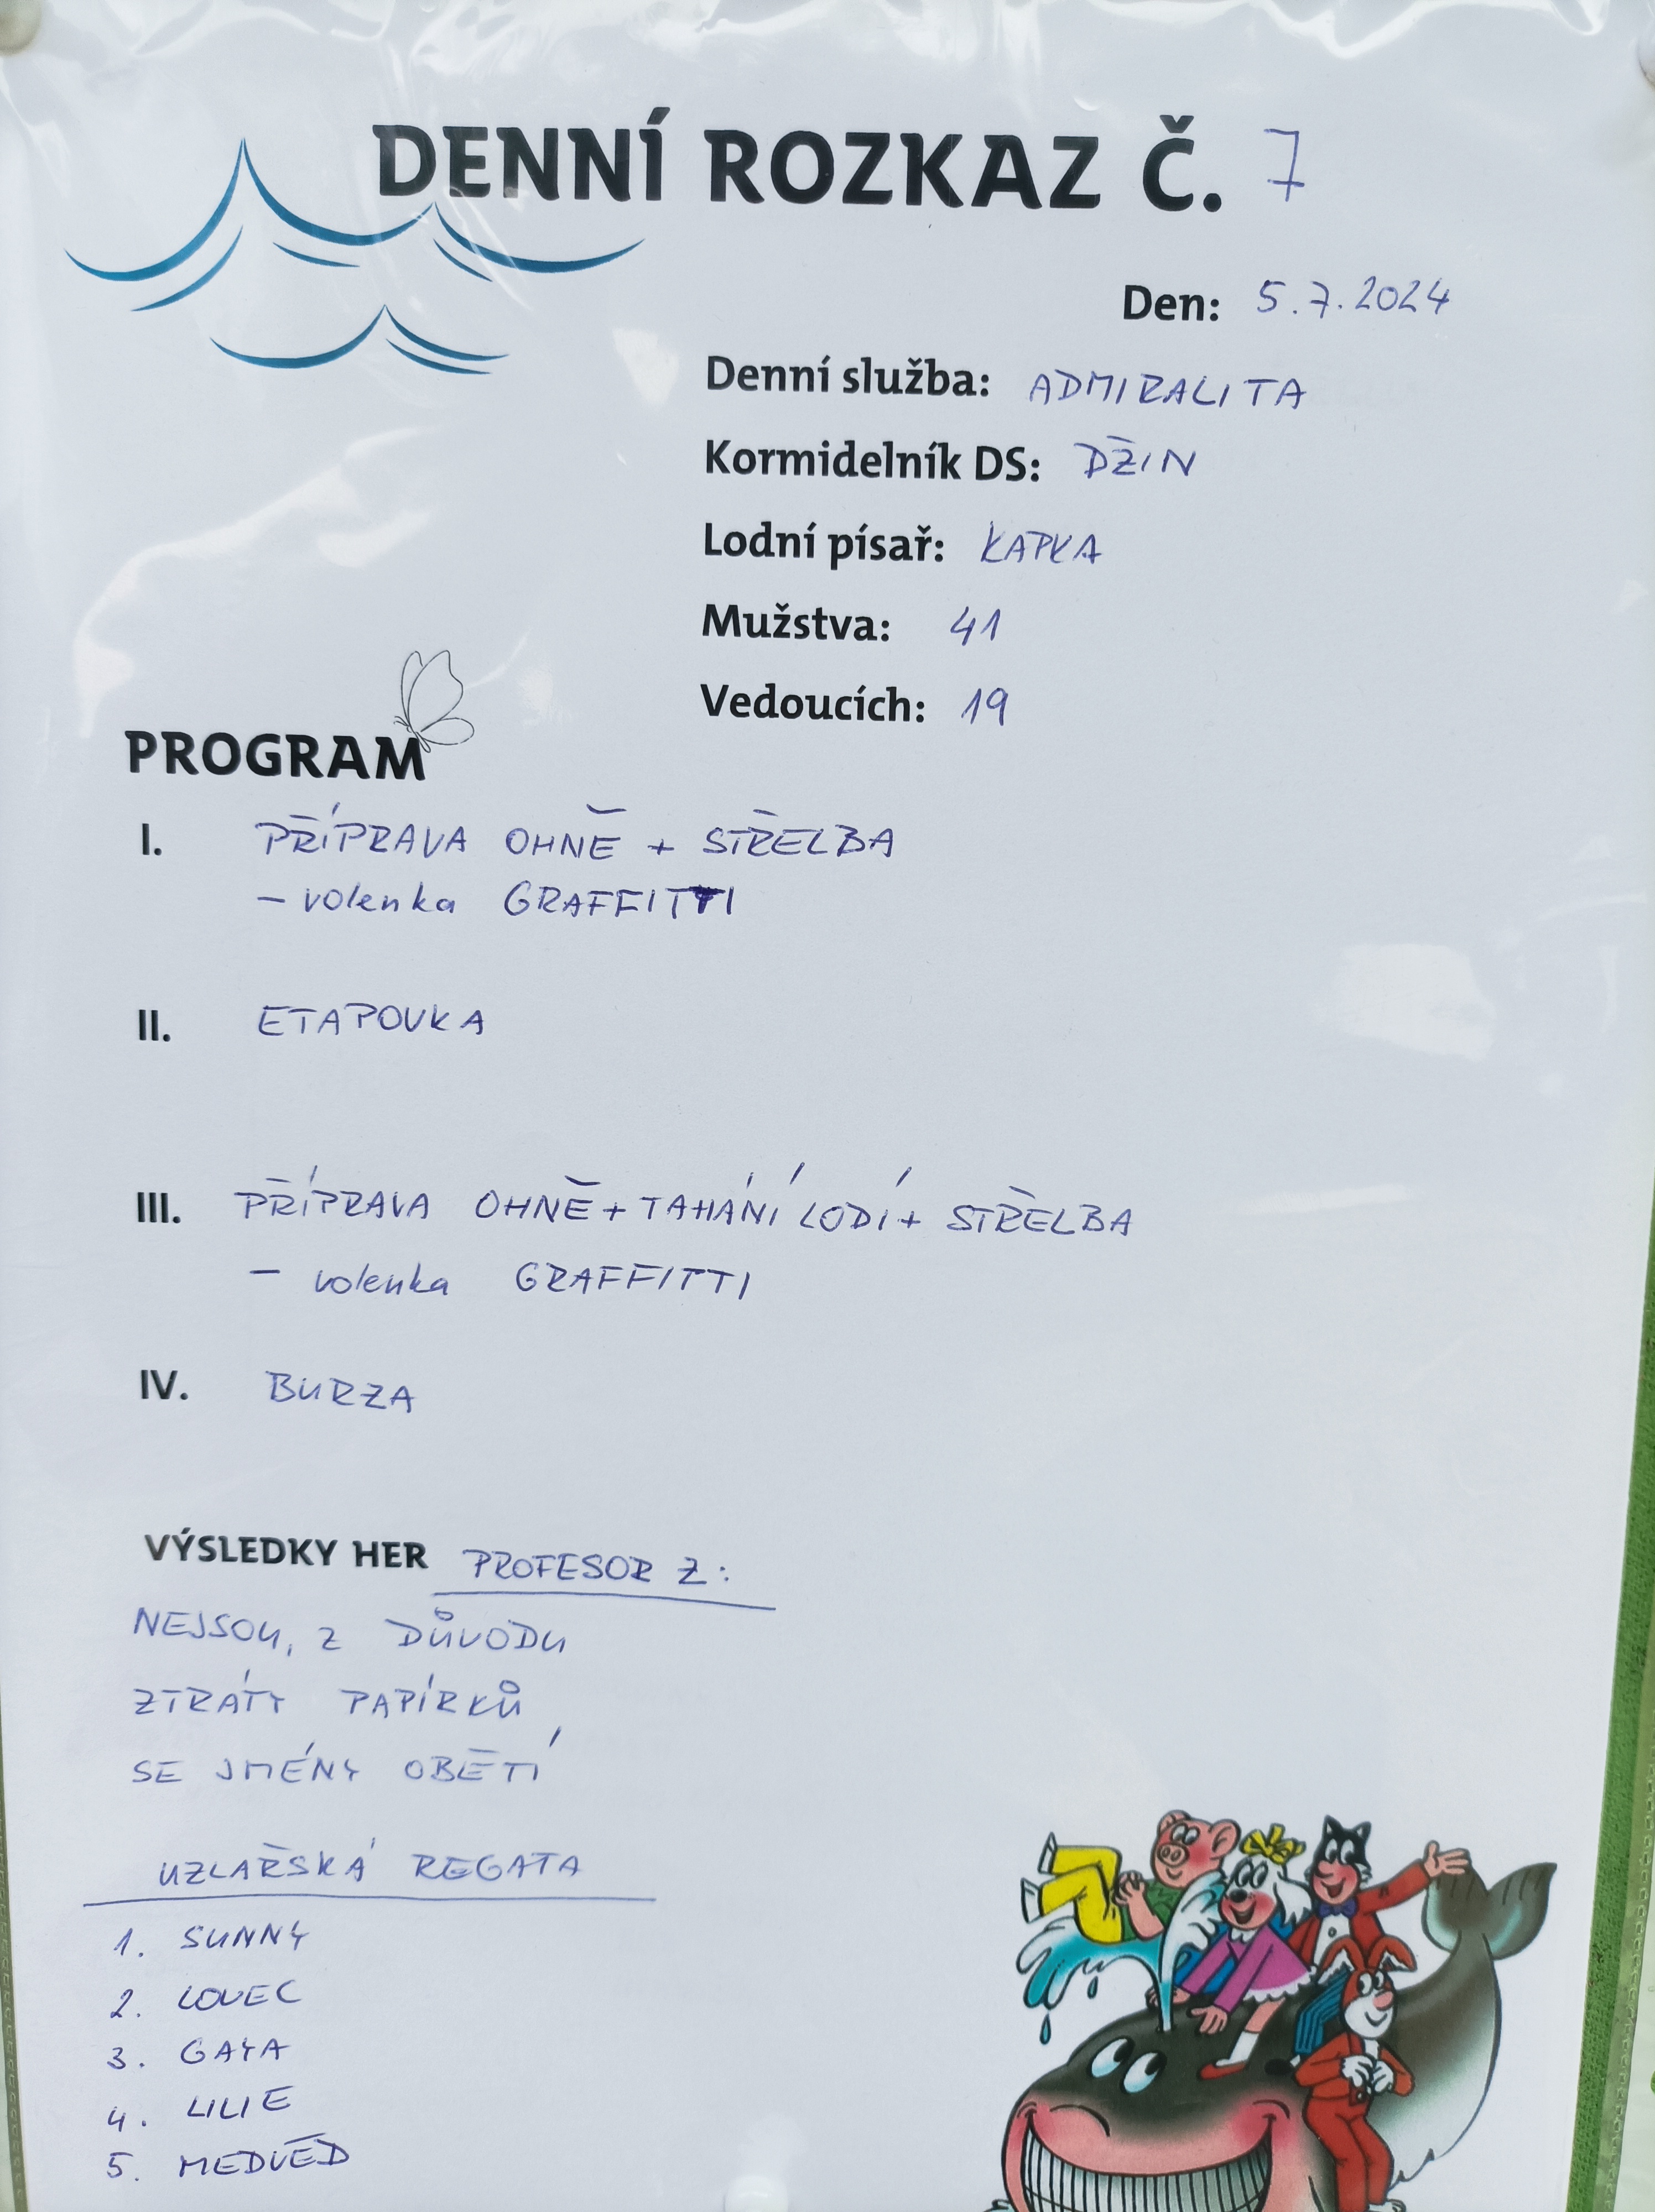 DENNÍ ROZKAZ Č. 7
Den: 5.7.2024
Denní služba: ADMIRALITA
Kormidelník DS: DŽIN
Lodní písař: KAPKA
Mužstva: 41
Vedoucích: 19
PROGRAM
I. PŘÍPRAVA OHNĚ + STŘELBA
- volenka GRAFFITTI
II. ETAPOVKA
III. PŘÍPRAVA OHNĚ + TAHÁNÍ LODÍ + STŘELBA
- volenka GRAFFITTI
IV. BURZA
VÝSLEDKY HER PROFESOR Z:
NEJSOU, Z DŮVODU
ZTRÁTY PAPÍRKŮ
SE JMÉNY OBĚTÍ
UZLAŘSKÁ REGATA
1. SUNNY
2. LOVEC
3. GAYA
4. LILIE
5. MEDVĚD